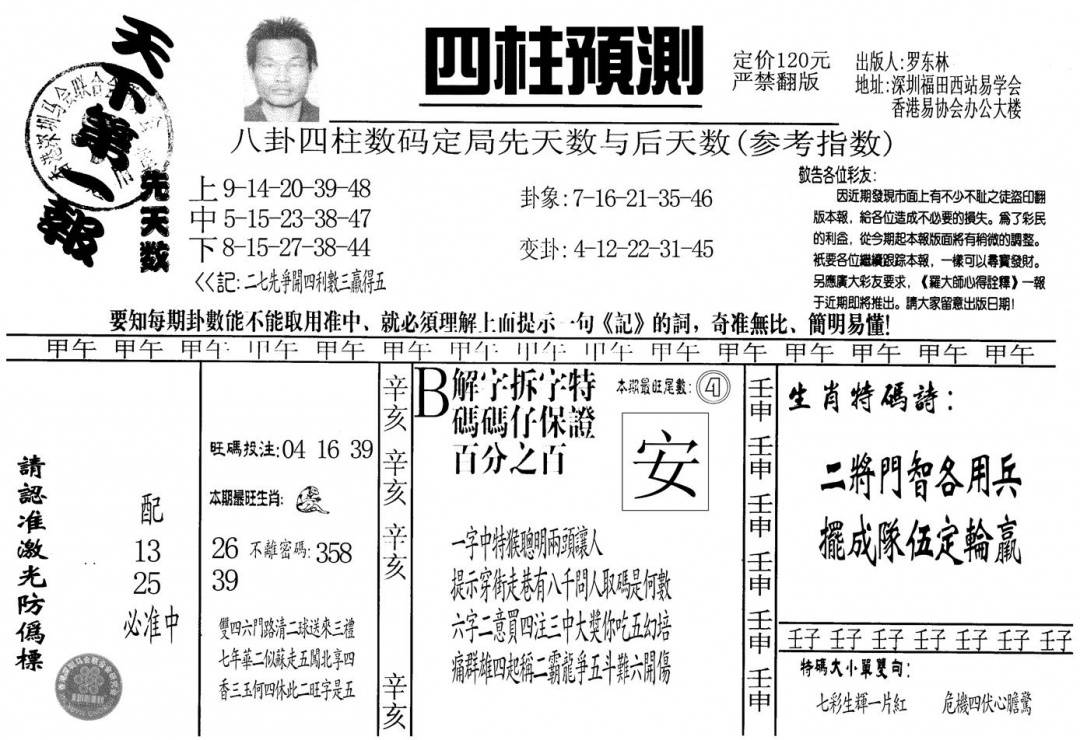 天下第一報
四柱預測
定价120元
严禁翻版
出版人:罗东林
地址:深圳福田西站易学会
香港易协会办公大楼
八卦四柱数码定局先天数与后天数(参考指数)
先天数
上9-14-20-39-48
中5-15-23-38-47
下8-15-27-38-44
<<記:二七先爭開四利數三贏得五
卦象:7-16-21-35-46
变卦:4-12-22-31-45
敬告各位彩友:
因近期發現市面上有不少不耻之徒盜印翻
版本報，給各位造成不必要的損失。為了彩民
的利益，從今期起本報版面將有稍微的調整。
衹要各位繼續跟踪本報，一樣可以尋寶發財。
另應廣大彩友要求，《羅大師心得詮釋》一報
于近期即將推出。請大家留意出版日期！
要知每期卦數能不能取用准中、就必須理解上面提示一句《記》的詞，奇准無比、簡明易懂！
甲午 甲午 甲午 甲午 甲午 甲午 甲午 甲午 甲午 甲午 甲午 甲午 甲午 甲午 甲午
請認准激光防僞標
配
13
25
必准中
旺碼投注:04 16 39
本期最旺生肖:
26 不離密碼:358
39
雙四六門路清二球送來三禮
七年華二似蘇走五闖北享四
香三玉何四休此二旺字是五
辛亥 辛亥 辛亥 辛亥
B
解字拆字特
碼碼仔保證
百分之百
本期最旺尾數:
安
一字中特猴聰明兩頭讓人
提示穿街走巷有八千問人取碼是何數
六字二意買四注三中大獎你吃五幻培
痛群雄四起稱二霸龍爭五斗難六開傷
壬申 壬申 壬申 壬申 壬申 壬申
生肖特碼詩:
二將門智各用兵
擺成隊伍定輪贏
壬子 壬子 壬子 壬子 壬子 壬子 壬子
特碼大小單雙句:
七彩生輝一片紅 危機四伏心膽驚